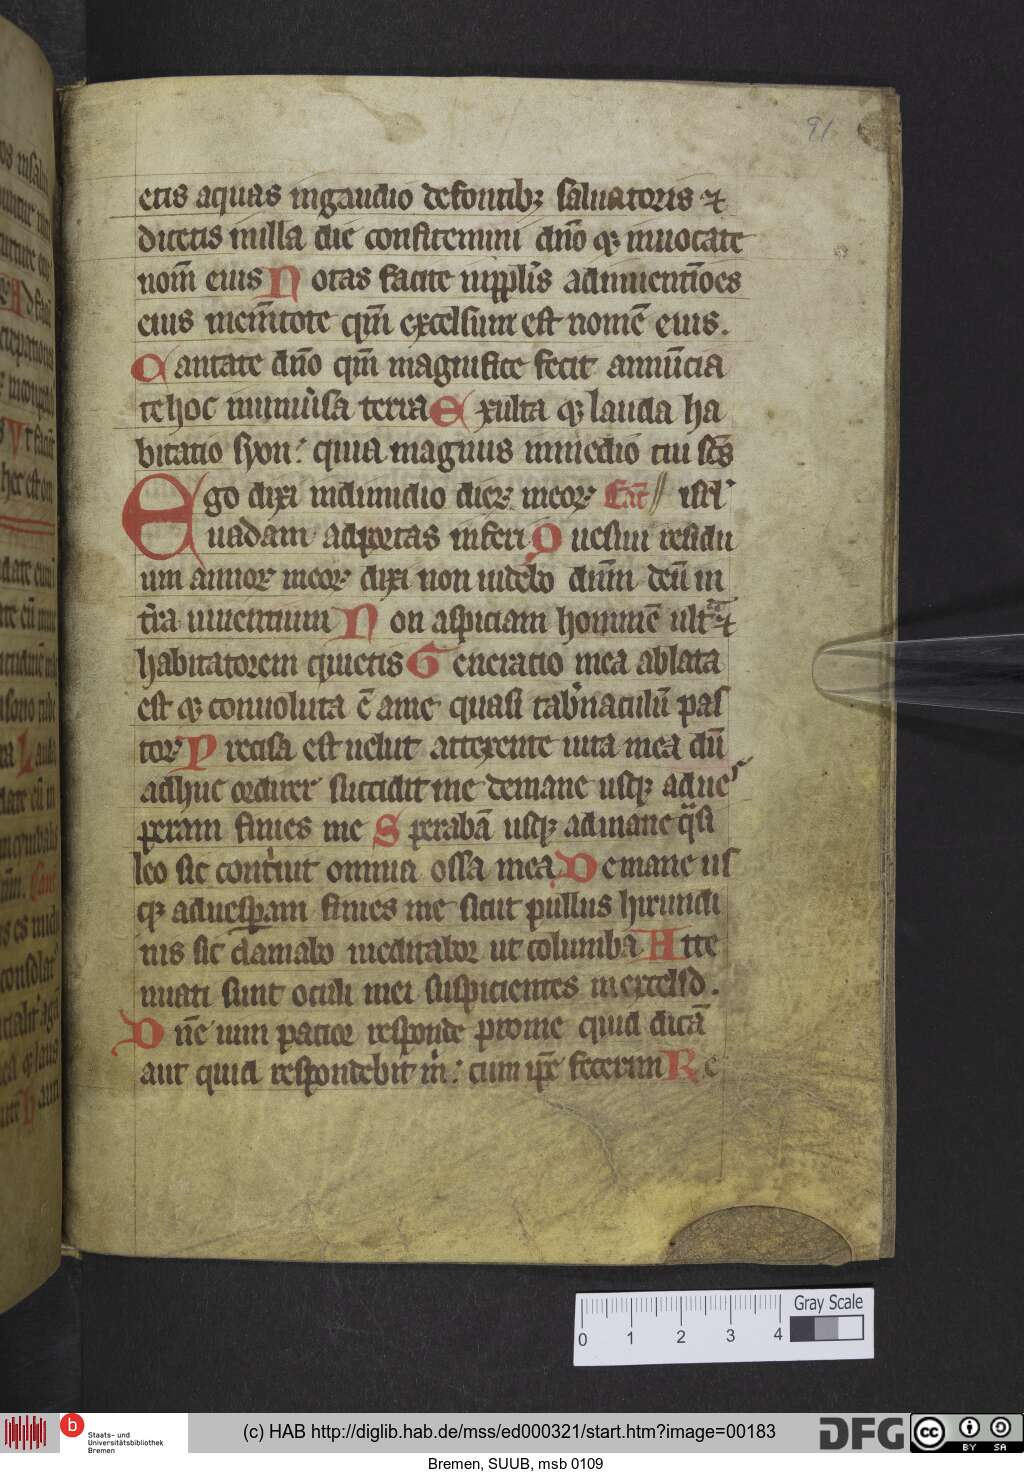 91
etis aquas in gaudio de fontibꝫ saluatoris ⁊
dicetis in illa die confitemini dn̄o ꝙ inuocate
nom̄ eius Notas facite in ppl̉is adinuenti̅oes
eius mem̄tote qm̄ excelsum est nome̅ eius.
Cantate dn̄o qm̄ magnifice fecit annu̅cia
te hoc in uniu̓sa terra Exulta ꝙ lauda ha
bitatio syon: quia magnus in medio tui sc̄s
Ego dixi in dimidio dieꝝ meoꝝ Cāt isrl̓
Uadam ad portas inferi Quesiui residu
um annoꝝ meoꝝ dixi non uidebo dn̄m deu̅ in
t̓ra uiuentium Non aspiciam homine̅ ult̓ ⁊
habitatorem quietis Generatio mea ablata
est ꝙ conuoluta e̅ a me quasi tab̓naculu̅ pas
toꝝ Precisa est uelut a texente uita mea du̅
adhuc ordirer succidit me de mane usqꝫ ad ues
peram finies me Speraba̅ usqꝫ ad mane q̓si
leo sic cont̓uit omnia ossa mea De mane us
qꝫ ad uesꝑam finies me sicut pullus hirundi
nis sic clamabo meditabor ut columba Atte
nuati sunt oculi mei suspicientes in excelso.
Dn̄e uim patior responde pro me quid dica̅
aut quid respondebit m̓: cum ip̄e fecerim Re
0 1 2 3 4
Gray Scale
b
Staats- und
Universitätsbibliothek
Bremen
(c) HAB http://diglib.hab.de/mss/ed000321/start.htm?image=00183
DFG
cc BY SA
Bremen, SUUB, msb 0109